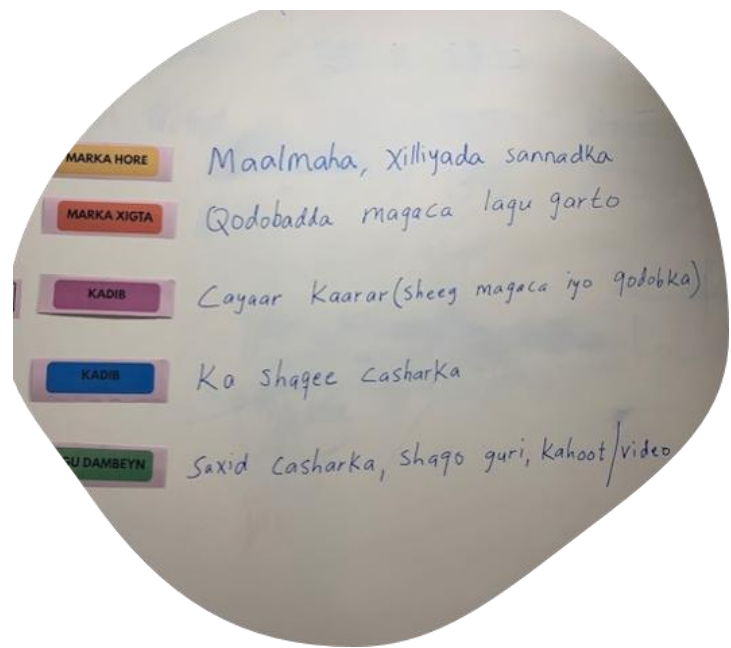 MARKA HORE Maalmaha, Xilliyada sannadka
MARKA XIGTA Qodobadda magaca lagu garto
KADIB Cayaar Kaarar (sheeg magaca iyo qodobka)
KADIB Ka shaqee casharka
GU DAMBEYN Saxid casharka, shaqo guri, Kahoot/video